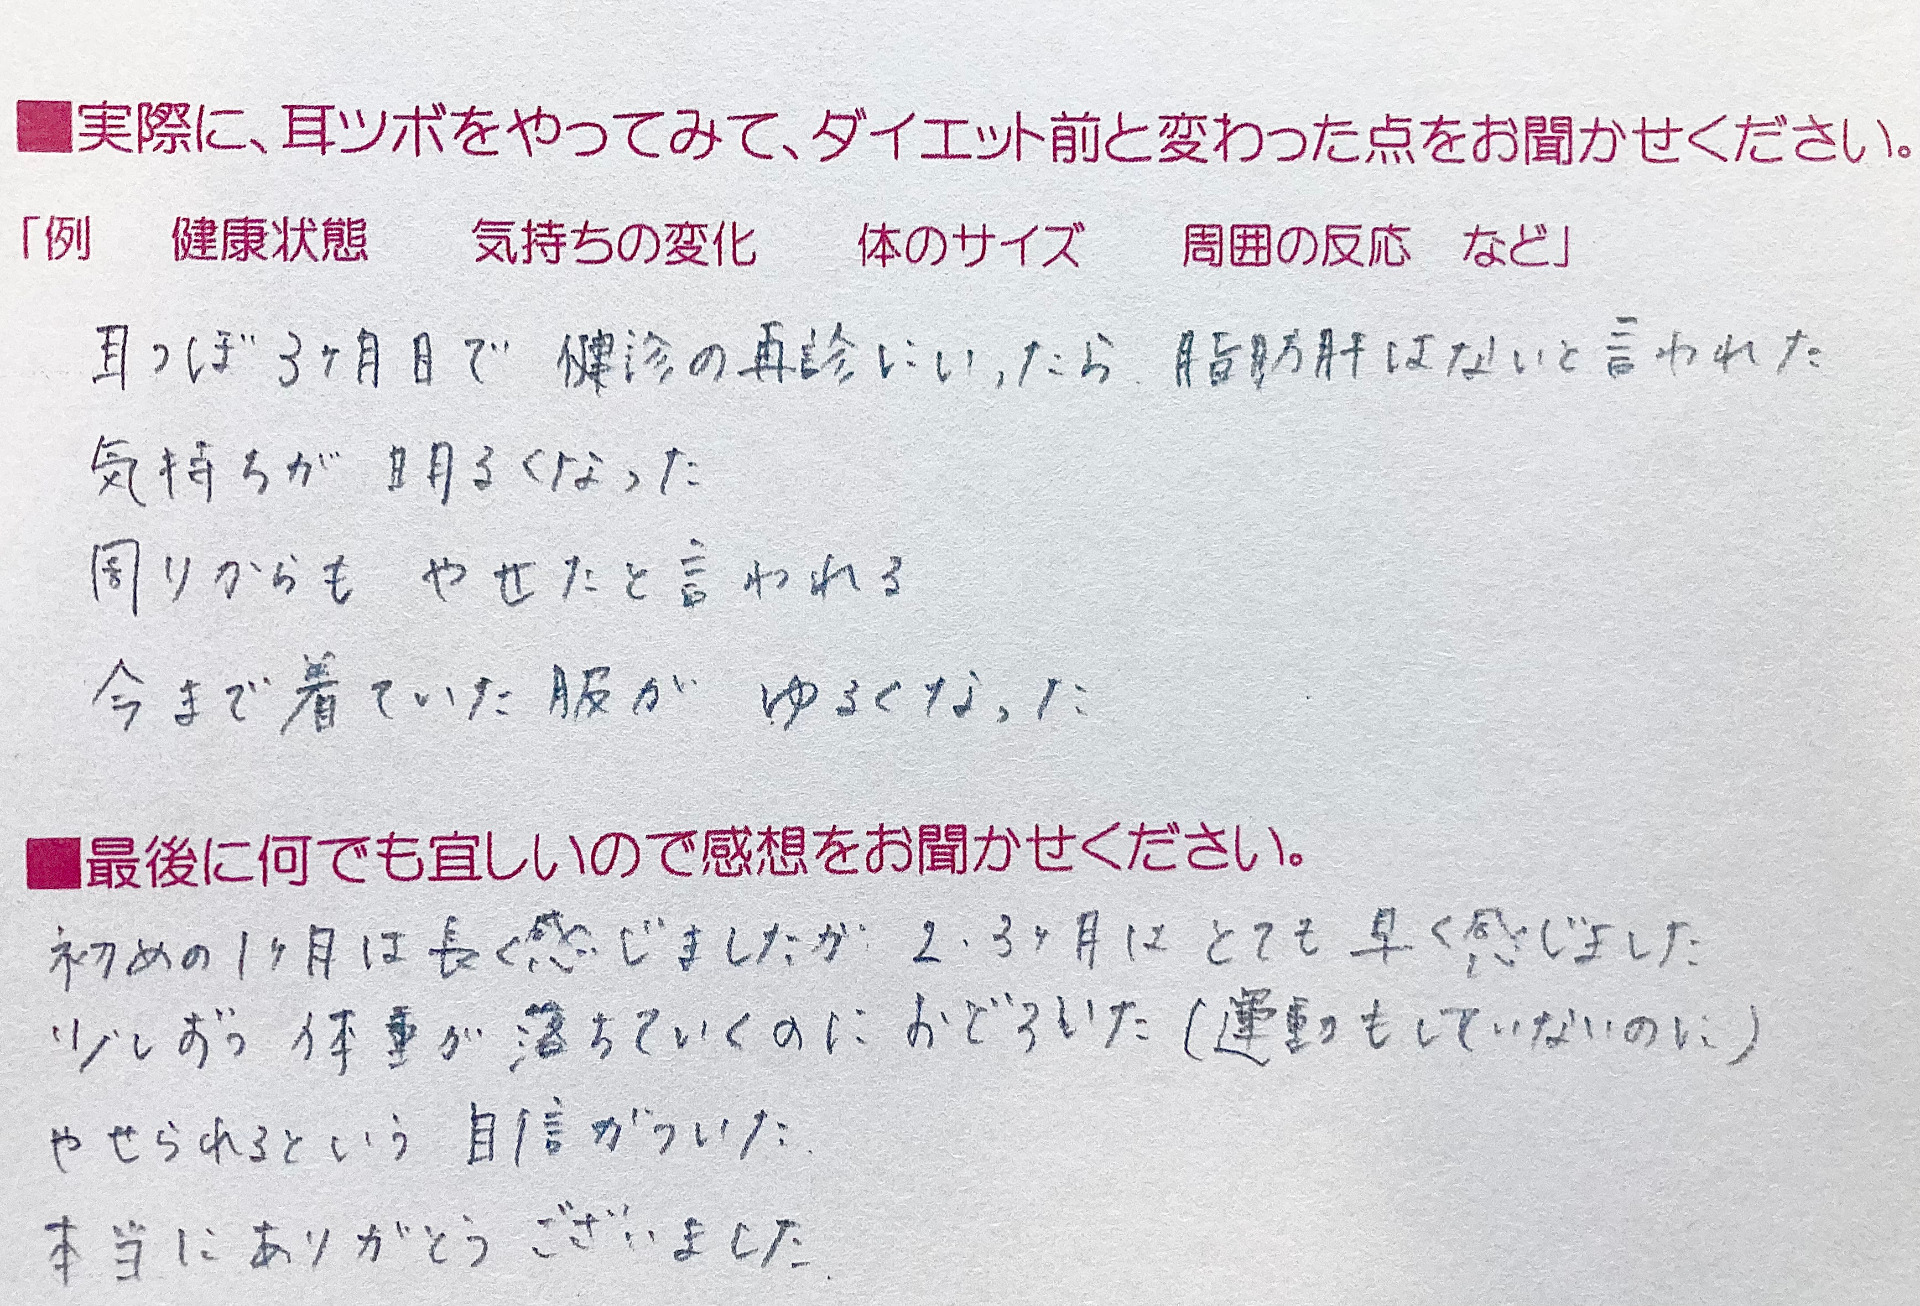 ■実際に、耳ツボをやってみて、ダイエット前と変わった点をお聞かせください。
「例　健康状態　気持ちの変化　体のサイズ　周囲の反応　など」
耳つぼ3ヶ月目で 健診の再診にいったら 脂肪肝はないと言われた
気持ちが 明るくなった
周りからも やせたと言われる
今まで着ていた服が ゆるくなった
■最後に何でも宜しいので感想をお聞かせください。
初めの1ヶ月は長く感じましたが 2.3ヶ月はとても早く感じました
少しずつ 体重が 落ちていくのに おどろいた(運動もしていないのに)
やせられるという 自信がついた.
本当にありがとうございました.